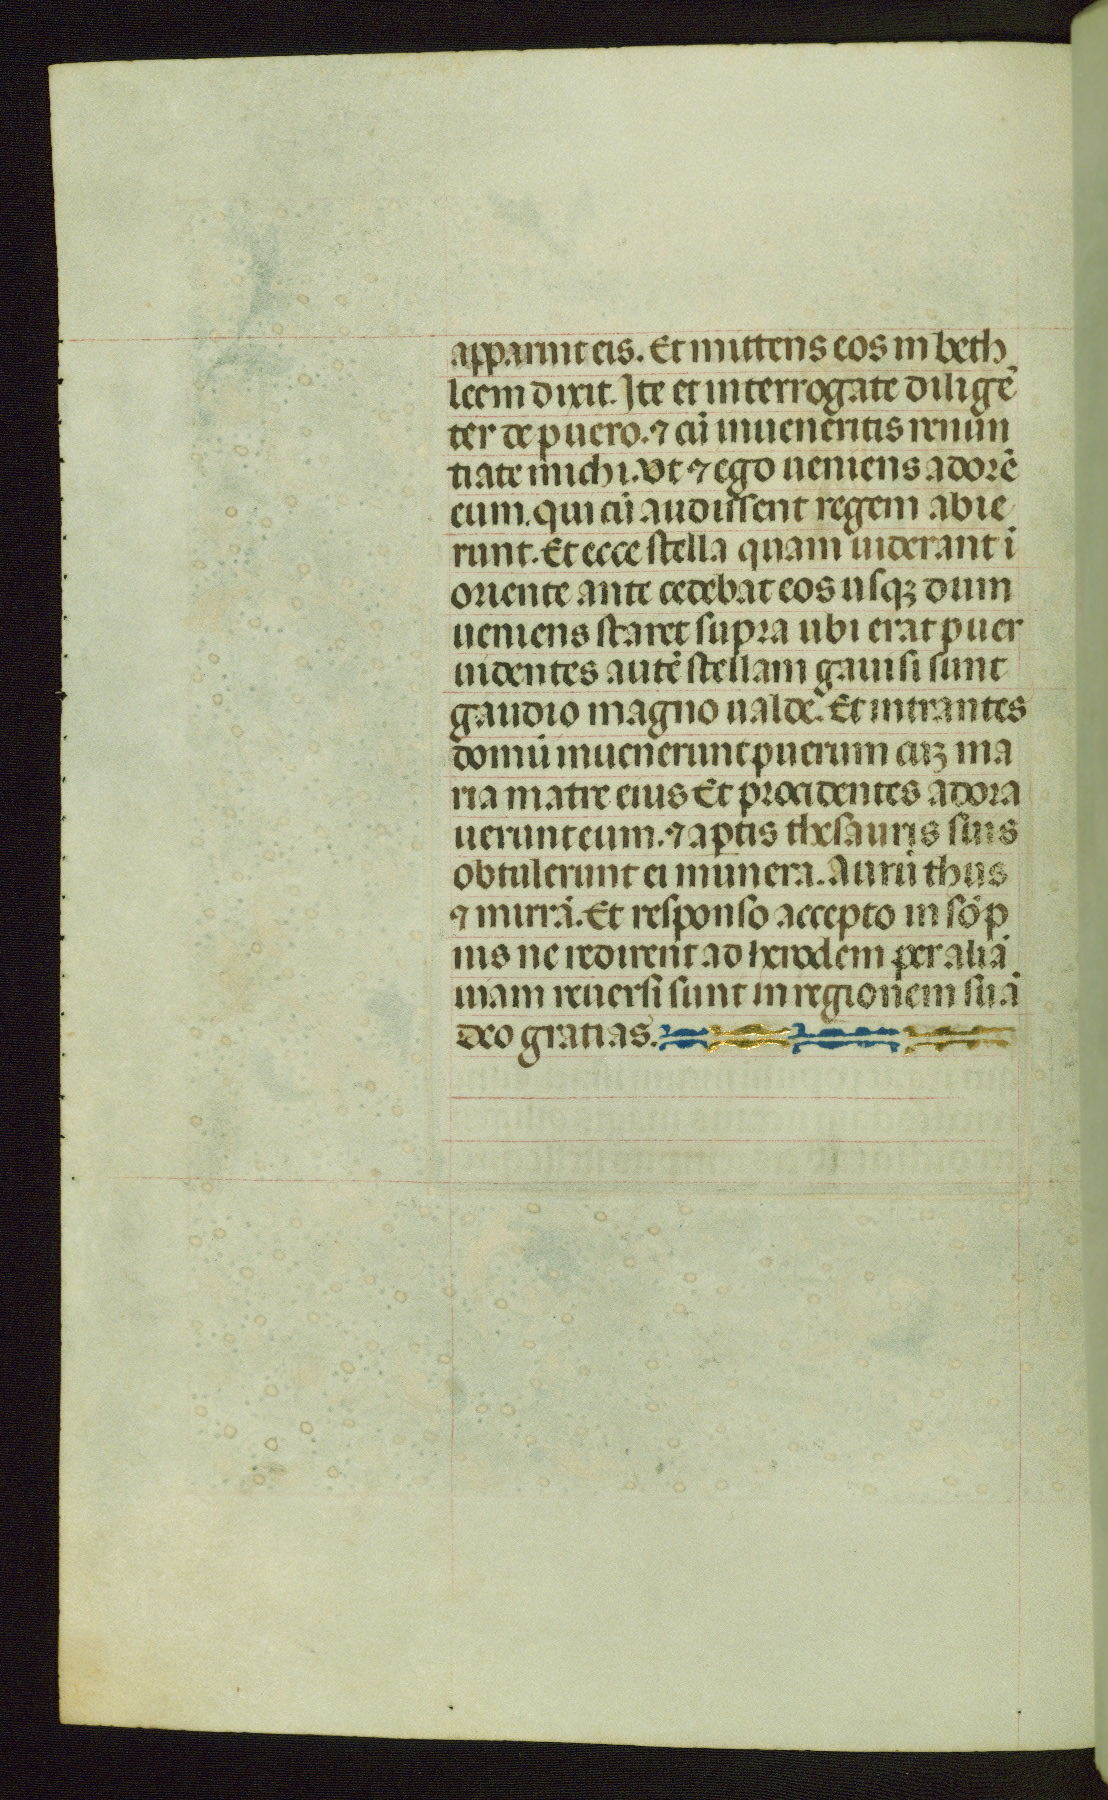 apparuit eis. Et mittens eos in beth
leem dixit. Ite et interrogate diligẽ
ter de puero. ⁊ cũ inueneritis renun
tiate michi. Vt ⁊ ego ueniens adorẽ
eum. qui cũ audissent regem abie
runt. Et ecce stella quam uiderant ĩ
oriente ante cedebat eos usqꝫ dum
ueniens staret supra ubi erat puer
uidentes autẽ stellam gauisi sunt
gaudio magno ualde. Et intrantes
domũ inuenerunt puerum cuꝫ ma
ria matre eius Et procidentes adora
uerunt eum. ⁊ aptis thesauris suis
obtulerunt ei munera. Aurũ thus
⁊ mirrã. Et responso accepto in sõp
nis ne redirent ad herodem per aliã
uiam reuersi sunt in regionem suã
deo gratias.